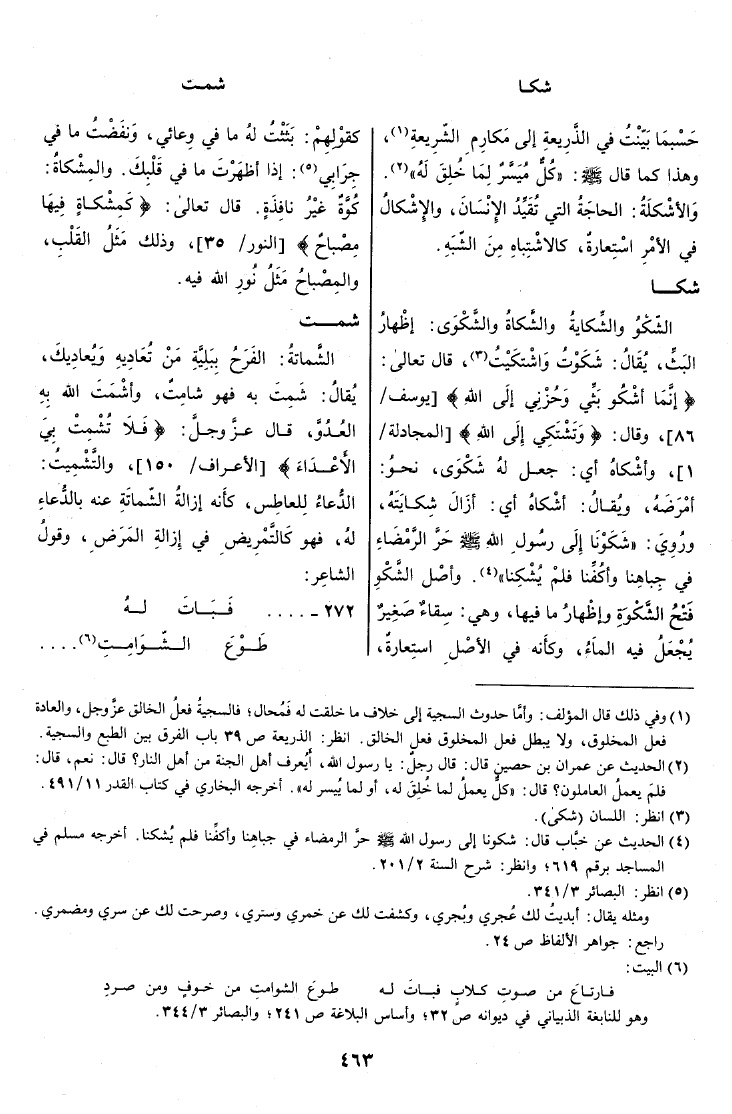 شكا
شمت
حَسْبَمَا بَيَّنْتُ في الذَّريعةِ إلى مَكارِمِ الشَّريعةِ(١)،
وهذا كما قال ﷺ: «كُلٌّ مُيَسَّرٌ لِمَا خُلِقَ لَهُ»(٢).
وَالأشْكَلَةُ: الحاجَةُ التي تُقَيِّدُ الإنْسَانَ، والإِشْكالُ
في الأمْرِ اسْتِعارَةٌ، كالاشْتِباهِ مِنَ الشَّبَهِ.
شكــا
الشَّكْوُ والشِّكايةُ والشَّكاةُ والشَّكْوَى: إظْهارُ
البَثِّ، يُقَالُ: شَكَوْتُ وَاشْتَكَيْتُ(٣)، قال تعالىٰ:
﴿ إِنَّمَا أَشْكُو بَثِّي وَحُزْنِي إلَى اللهِ ﴾ [يوسف/
٨٦]، وقال: ﴿ وَتَشْتَكِي إِلَى اللهِ ﴾ [المجادلة/
١]، وأشْكاهُ أي: جعل لهُ شَكْوَى، نحوُ:
أمْرَضَهُ، ويُقـالُ: أشْكاهُ أي: أزَالَ شِكـايَتَهُ،
ورُوِيَ: «شَكَوْنَا إلى رسُولِ اللهِ ﷺ حَرَّ الرَّمْضَاءِ
في جِباهِنا وأكُفِّنا فلمْ يُشْكِنا»(٤). وأصْل الشَّكْوِ
فَتْحُ الشَّكْوَةِ وإظْهارُ ما فيها، وهي: سِقاءٌ صَغِيرٌ
يُجْعَلُ فيه المـاءُ، وكأنه في الأصْلِ استعارةٌ،
كقولِهِمْ: بَثَثْتُ لهُ ما في وِعائي، وَنَفَضْتُ ما في
جِرَابي(٥): إذا أظْهَرْتَ ما في قَلْبِكَ. والمِشْكاةُ:
كُوَّةٌ غَيْرُ نافِذَةٍ. قال تعالىٰ: ﴿ كَمِشْكـاةٍ فِيهَا
مِصْباحٌ ﴾ [النور/ ٣٥]، وذلك مَثَلُ القَلْبِ،
والمِصْباحُ مَثَلُ نُورِ الله فيه.
شمــت
الشَّماتةُ: الفَرَحُ بِبَلِيَّةِ مَنْ تُعَادِيهِ وَيُعَادِيكَ،
يُقالُ: شَمِتَ به فهو شامِتٌ، وأشْمَتَ الله بِهِ
العَدُوَّ، قـال عـزَّ وجـلَّ: ﴿ فَـلَا تُشْمِتْ بِيَ
الأَعْـدَاءَ ﴾ [الأعـراف/ ١٥٠]، والتَّشْمِيتُ:
الدُّعاءُ للعاطِسِ، كأنه إزالةُ الشَّماتَةِ عنه بالدُّعاءِ
لهُ، فهو كَالتَّمْريضِ في إزالةِ المَرَضِ، وقولُ
الشاعِرِ:
٢٧٢ ـ .... فَـبَـاتَ لـهُ
طَـوْعَ الـشَّـوَامِـتِ(٦)....
(١) وفي ذلك قال المؤلف: وأمّا حدوث السجية إلى خلاف ما خلقت له فمُحال؛ فالسجيةُ فعلُ الخالق عزّ وجل، والعادة
فعل المخلوق، ولا يبطل فعل المخلوق فعل الخالق. انظر: الذريعة ص ٣٩ باب الفرق بين الطبع والسجية.
(٢) الحديث عن عمران بن حصينٍ قال: قال رجلٌ: يا رسول الله، أيُعرف أهل الجنة من أهل النار؟ قال: نعم، قال:
فلمَ يعملُ العاملون؟ قال: «كلٌّ يعملُ لما خُلِقَ له، أو لما يُيسر له». أخرجه البخاري في كتاب القدر ٤٩١/١١.
(٣) انظر: اللسان (شكىٰ).
(٤) الحديث عن خبَّاب قال: شكونا إلى رسول الله ﷺ حرَّ الرمضاء في جباهنا وأكفِّنا فلم يُشكنا. أخرجه مسلم في
المساجد برقم ٦١٩؛ وانظر: شرح السنة ٢٠١/٢.
(٥) انظر: البصائر ٣٤١/٣.
ومثله يقال: أبديتُ لك عُجري وبُجري، وكشفت لك عن خمري وستري، وصرحت لك عن سري ومضمري.
راجع: جواهر الألفاظ ص ٢٤.
(٦) البيت:
فـارتـاعَ من صـوتِ كـلابٍ فبـاتَ لـه طـوعَ الشوامتِ من خـوفٍ ومن صـردِ
وهو للنابغة الذبياني في ديوانه ص ٣٢؛ وأساس البلاغة ص ٢٤١؛ والبصائر ٣٤٤/٣.
٤٦٣